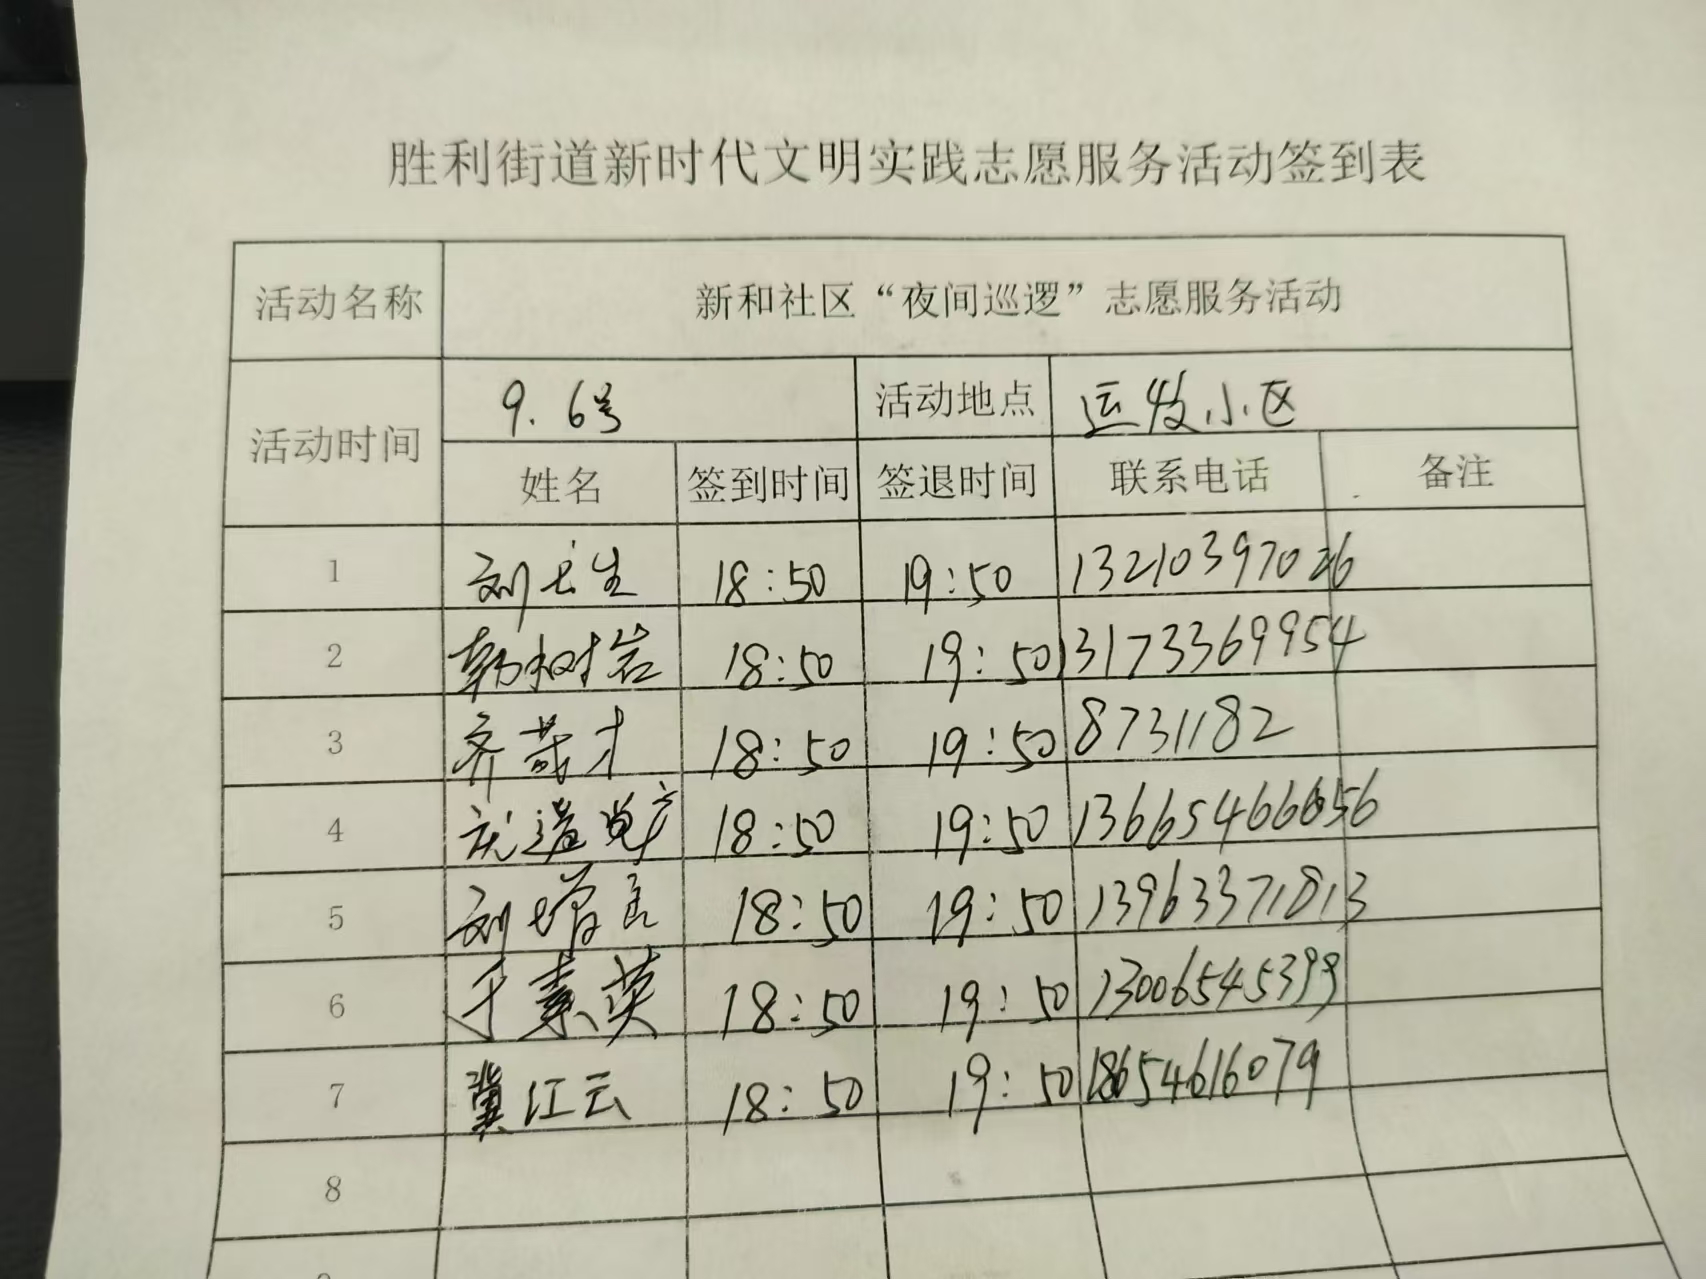 胜利街道新时代文明实践志愿服务活动签到表
活动名称 新和社区“夜间巡逻”志愿服务活动
活动时间 9.6号 活动地点 运发小区
姓名 签到时间 签退时间 联系电话 备注
1 刘长生 18:50 19:50 13210397026
2 韩树岩 18:50 19:50 13173369954
3 齐茂才 18:50 19:50 8731182
4 18:50 19:50 13665466656
5 刘增良 18:50 19:50 13963371813
6 于素英 18:50 19:50 13006545399
7 冀江云 18:50 19:50 18654616079
8